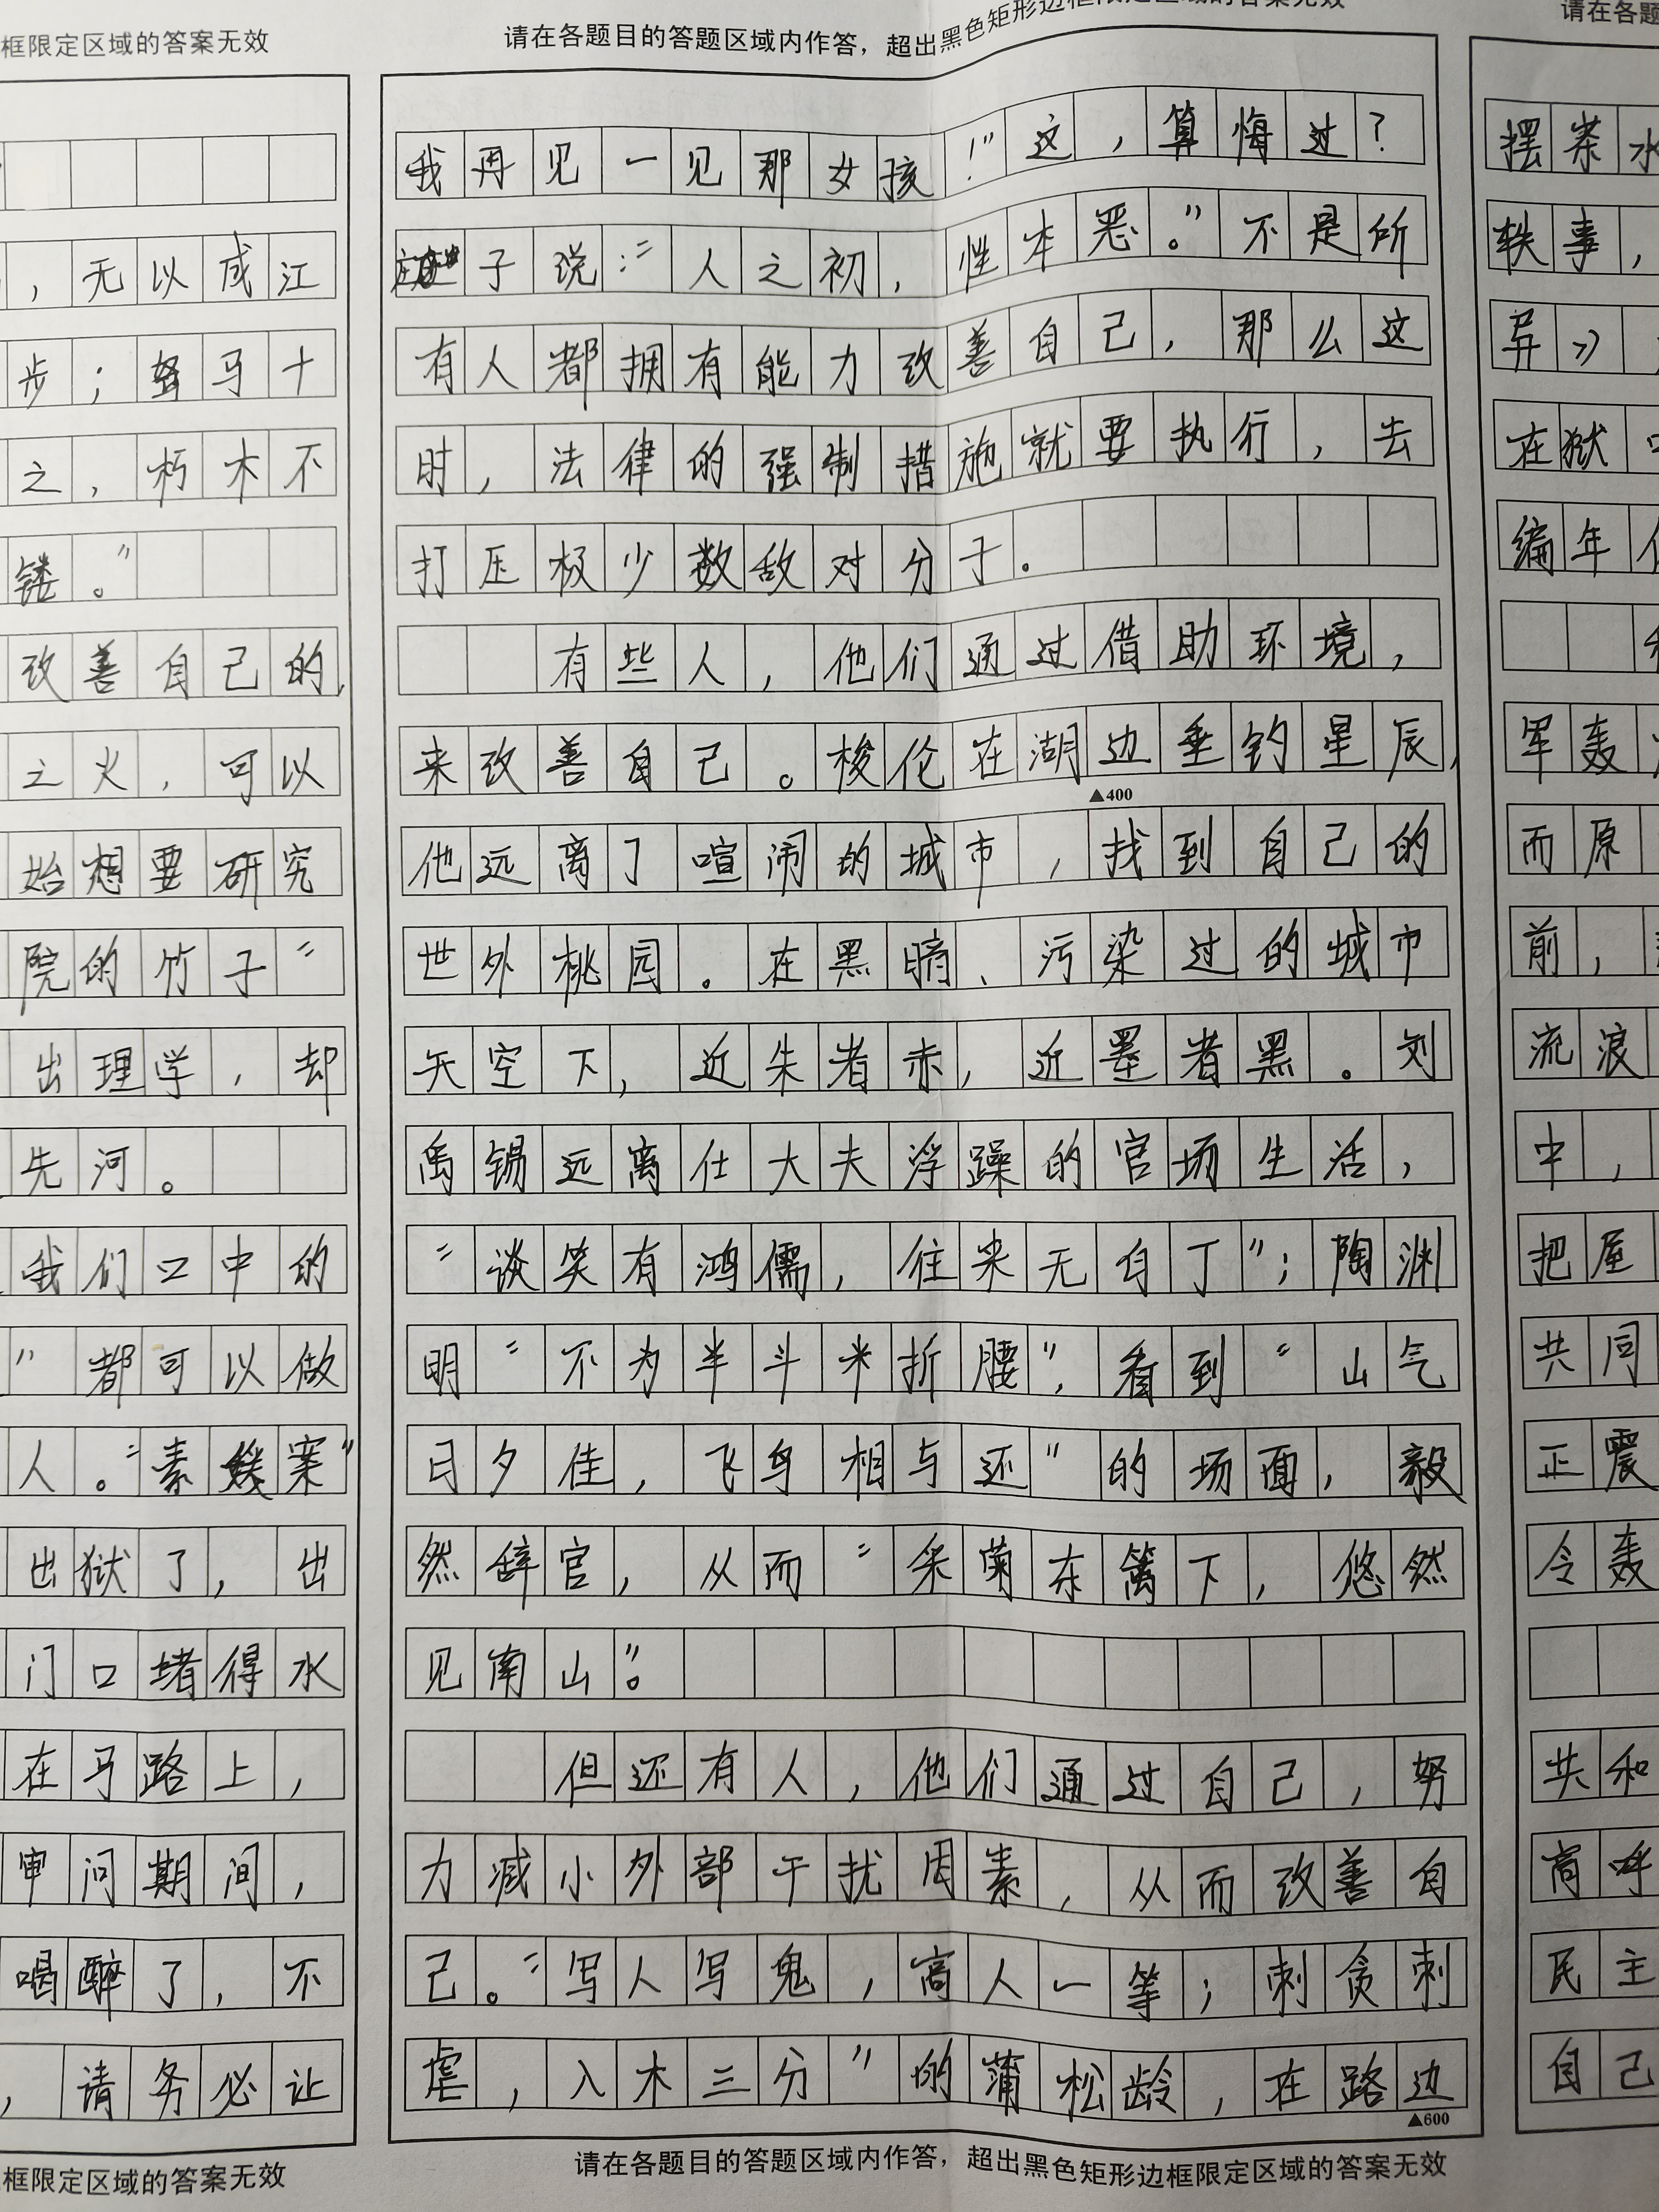 框限定区域的答案无效
，无以成江
步；驽马十
之，朽木不
镂。”
改善自己的，
之火，可以
始想要研究
院的竹子“
出理学，却
先河。
我们口中的
”都可以做
人。“素媛案”
出狱了，出
门口堵得水
在马路上，
审问期间，
喝醉了，不
，请务必让
框限定区域的答案无效
请在各题目的答题区域内作答，超出黑色矩形边框限定区域的答案无效
我再见一见那女孩！”这，算悔过？
子说：“人之初，性本恶。”不是所
有人都拥有能力改善自己，那么这
时，法律的强制措施就要执行，去
打压极少数敌对分子。
有些人，他们通过借助环境，
来改善自己。梭伦在湖边垂钓星辰，
▲400
他远离了喧闹的城市，找到自己的
世外桃园。在黑暗、污染过的城市
天空下，近朱者赤，近墨者黑。刘
禹锡远离仕大夫浮躁的官场生活，
“谈笑有鸿儒，往来无白丁”；陶渊
明“不为半斗米折腰”，看到“山气
日夕佳，飞鸟相与还”的场面，毅
然辞官，从而“采菊东篱下，悠然
见南山”。
但还有人，他们通过自己，努
力减小外部干扰因素，从而改善自
己。“写人写鬼，高人一等；刺贪刺
虐，入木三分”的蒲松龄，在路边
▲600
请在各题目的答题区域内作答，超出黑色矩形边框限定区域的答案无效
请在各题
摆茶水
轶事，
异》
在狱中
编年
军轰
而原
前，
流浪
中，
把屋
共同
正震
令轰
共和
高呼
民主
自己